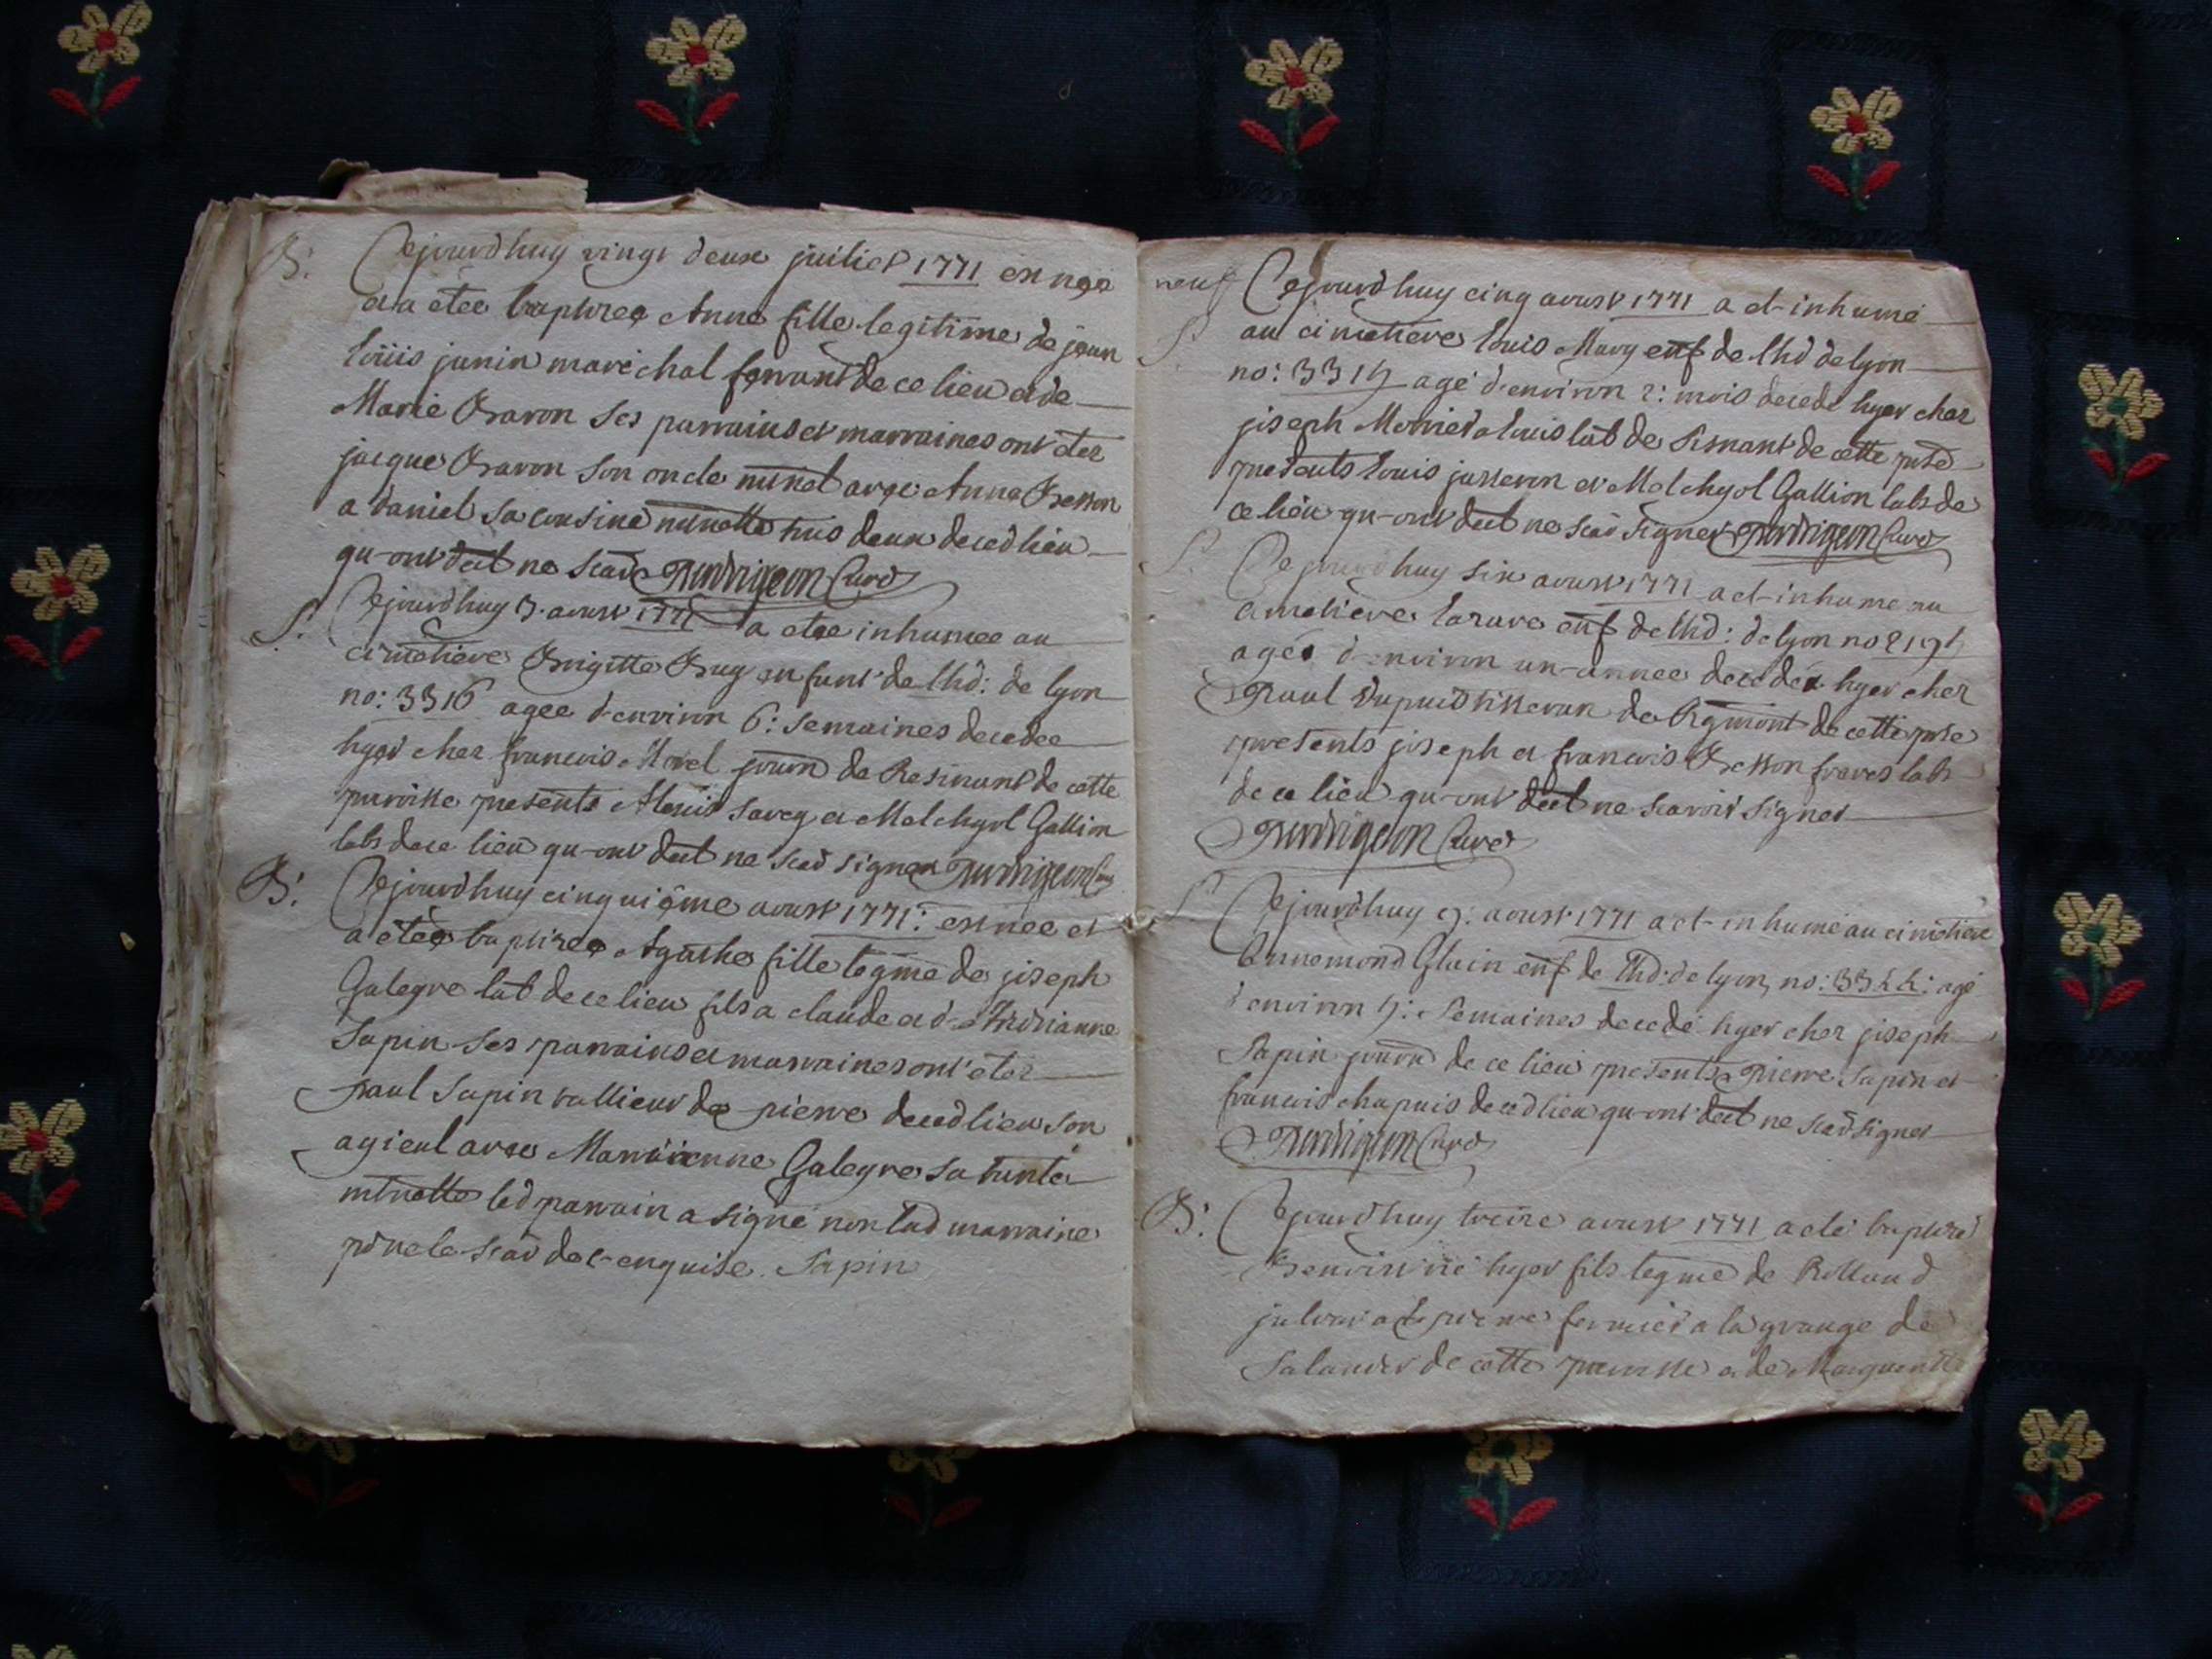 B: Cejourdhuy vingt deux juiliet 1771 est nèe
et a etée baptisee Anne fille legitime de jean
loüis janin maréchal ferrant de ce lieu et de
Marie Bavon ses parrains et marraines ont etez
jacque Bavon son oncle avec Anne Besson
a daniel sa cousine tous deux decedlieu
qu-ont dect ne scavr Curé
S: Cejourdhuy 3. aoust 1771 a etee inhumee au
cimetiere Brigitte Bug enfant de lhd: de lyon
no: 3316 agee d-environ 6: semaines decedee
hyer chez francois Morel journ de Resinant de cette
paroisse presents Alouis savey et Melchyol Gallion
labs dece lieu qu-ont dect ne scavr signer Curé
B: Cejourdhuy cinquiême aoust 1771: est nèe et
a eteé baptisee Agathe fille legme de joseph
Galegre lab de ce lieu fils a claude et d-
Sapin ses parrains et marraines ont etez
paul Sapin de pierre decedlieu son
agieul avec Galegre sa tante
led parrain a signé non lad marraine
pr ne le scavr de c-enquise. Sapin
neuf Cejourdhuy cinq aoust 1771 a et-inhumé
S: au cimetiere loüis Mary enf de lhd de lyon
no: 331 agé d-environ 2: mois decedé hyer chez
joseph a louis lab de de cette
presents louis et Melchyol Gallion labs de
ce lieu qu-ont dect ne scavr signer Curé
S. Cejourdhuy six aoust 1771 a et-inhume au
cimetiere enf de lhd: de lyon no
agé d-environ un-annee decedé hyer chez
Paul Dupuis tisseran de de cette
presents joseph et francois Besson freres labs
de ce lieu qu-ont dect ne scavoir signer
Curé
S Cejourdhuy 9: aoust 1771 a et-inhumé au cimetiere
Annemond Gluin enf de lhd: de lyon, no: 33 agé
d'environ : semaines decedé hyer chez joseph
Sapin journ de ce lieu presents pierre Sapin et
francois chapuis decedlieu qu-ont dect ne scavr signer
Curé
B: Cejourdhuy treize aoust 1771 a eté baptisé
Benoist né hyer fils legme de Rolland
a pierre fermier a la grange de
de cette paroisse et de Marguerite